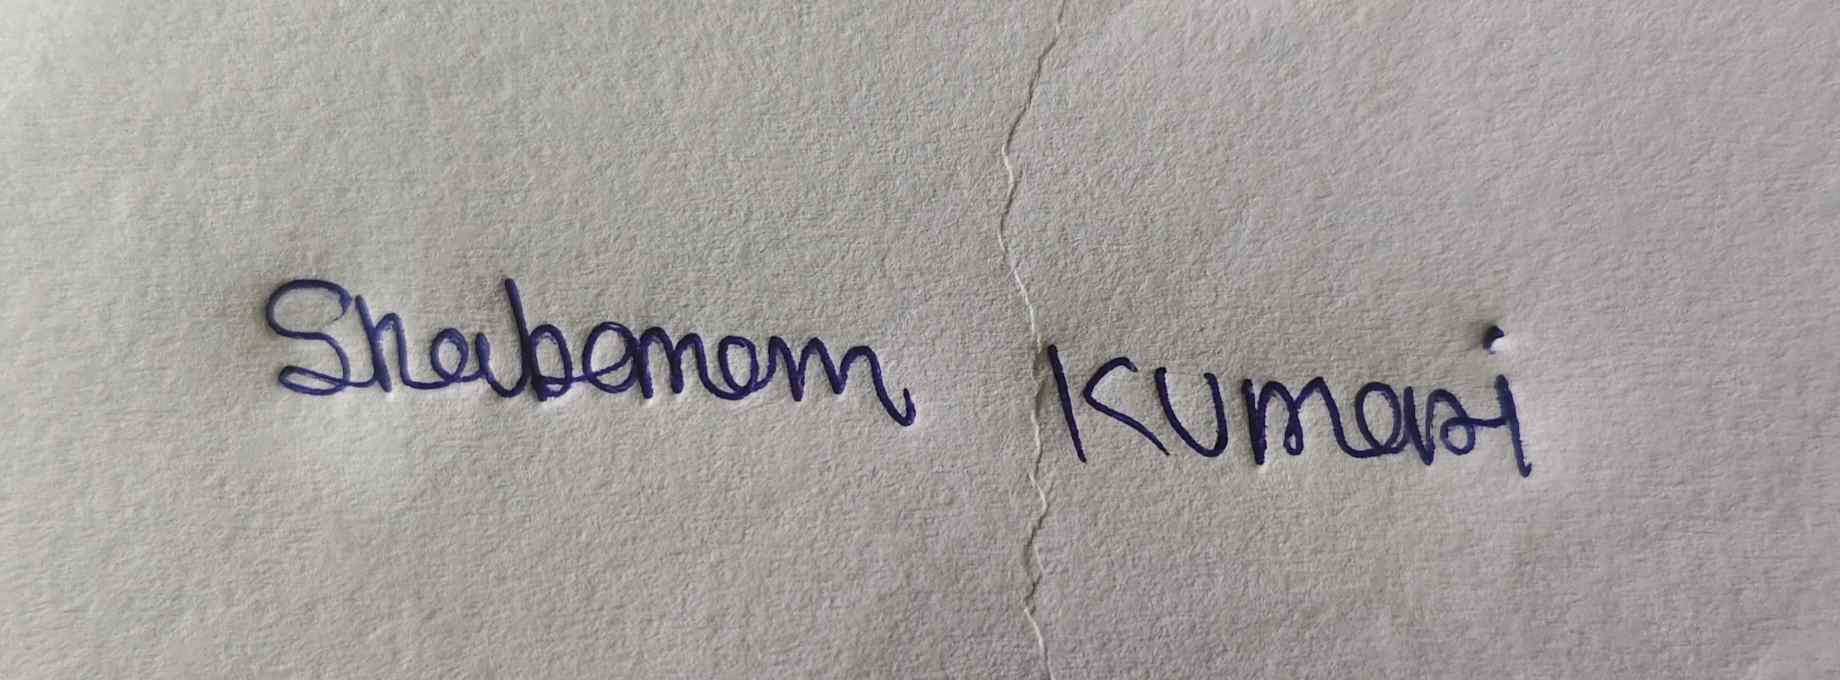 Shabanam Kumari